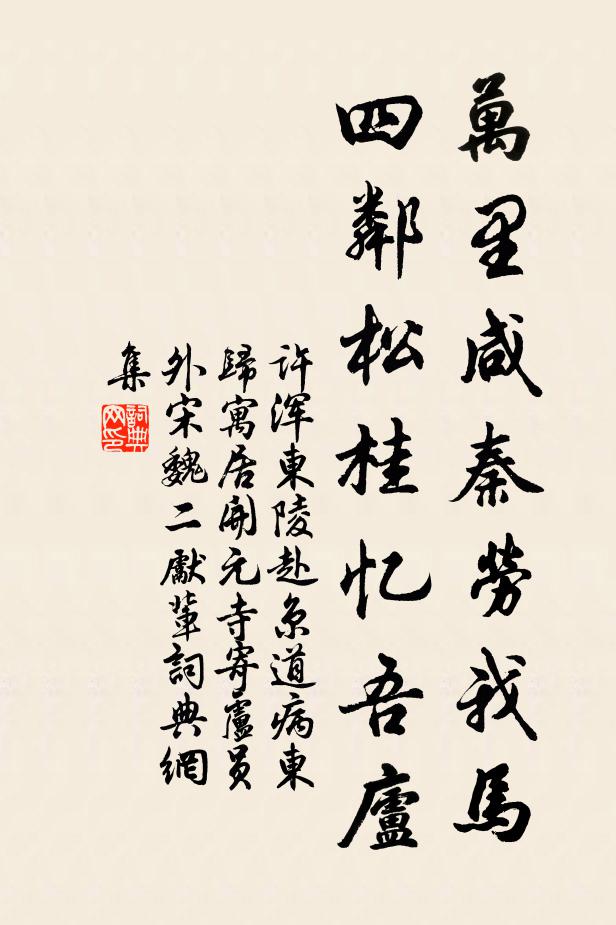 萬里咸秦勞我馬
四鄰松桂忆吾廬
许浑東陵赴京道病東
歸寓居開元寺寄盧员
外宋魏二獻輩詞典網
集
詞典網印